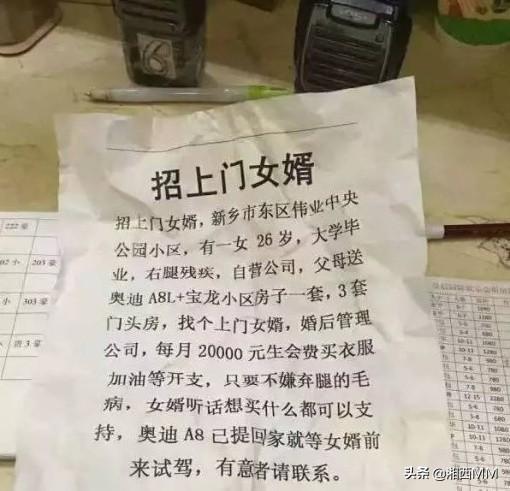 招上门女婿
招上门女婿，新乡市东区伟业中央
公园小区，有一女 26 岁，大学毕
业，右腿残疾，自营公司，父母送
奥迪 A8L+宝龙小区房子一套，3 套
门头房，找个上门女婿，婚后管理
公司，每月 20000 元生会费买衣服
加油等开支，只要不嫌弃腿的毛
病，女婿听话想买什么都可以支
持，奥迪 A8 己提回家就等女婿前
来试驾，有意者请联系。
6
222 豪
02 小
203 豪
303 豪
头条 @湘西MM